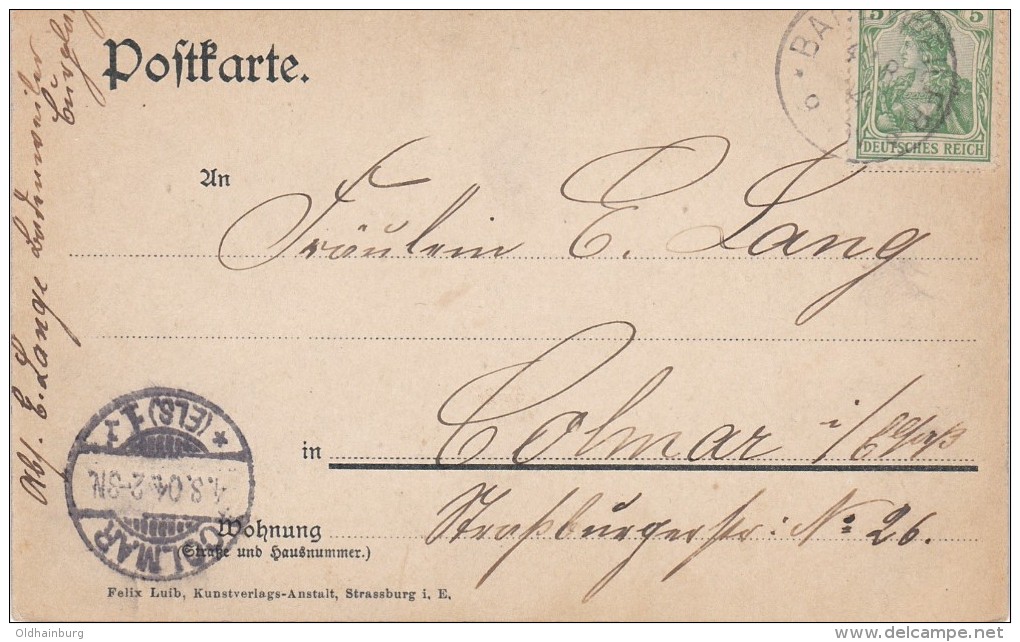 Postkarte.
5 5
DEUTSCHES REICH
An
Fräulein E. Lang
in Colmar i/Elsaß
Wohnung Straßburgerstr: No 26.
(Straße und Hausnummer.)
Felix Luib, Kunstverlags-Anstalt, Strassburg i. E.
Abs. E. Lange Badenweiler
COLMAR
.8.04.2-3N.
* (ELS) 1
Oldhainburg
delcampe.net